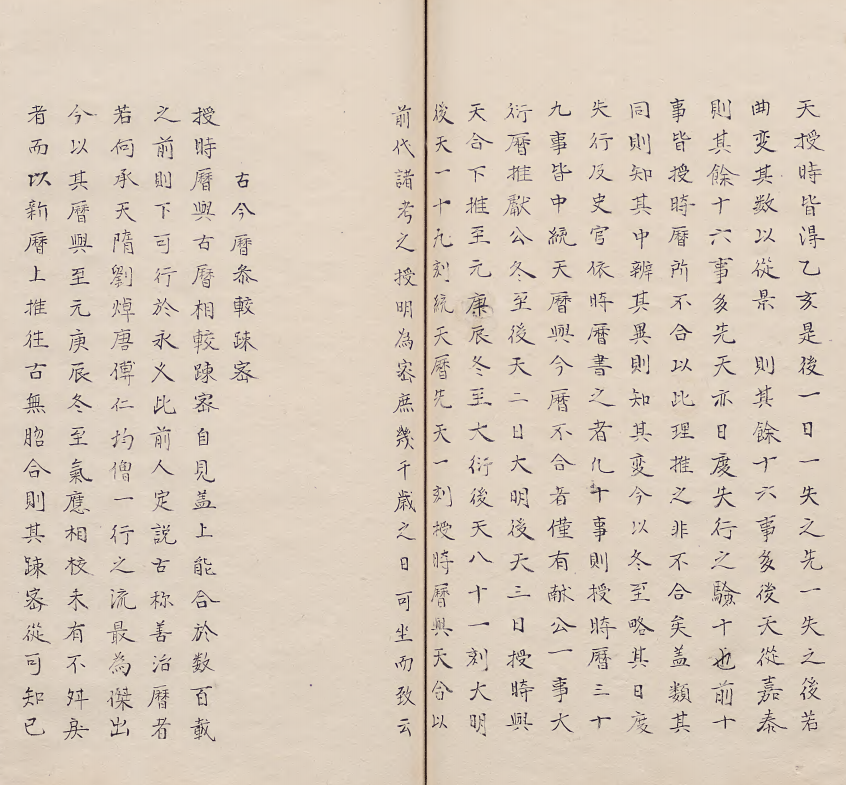 天授時皆得乙亥是後一日一失之先一失之後若
曲变其数以從景　則其餘十六事多後天從嘉泰
則其餘十六事多先天亦日度失行之驗十也前十
事皆授時曆所不合以此理推之非不合矣盖類其
同則知其中辨其異則知其变今以冬至略其日度
失行及史官依時曆書之者凡十事則授時曆三十
九事皆中統天曆與今曆不合者僅有献公一事大
衍曆推獻公冬至後天二日大明後天三日授時與
天合下推至元庚辰冬至大衍後天八十一刻大明
後天一十九刻統天曆先天一刻授時曆與天合以
前代諸考之授明為密庶幾千歳之日可坐而致云
古今曆叅較踈密
授時曆與古曆相較踈密自見盖上能合於数百載
之前則下可行於永乆此前人定説古称善治曆者
若何承天隋劉焯唐傅仁均僧一行之流最為傑出
今以其曆與至元庚辰冬至氣應相校未有不舛戾
者而以新曆上推往古無脗合則其踈密從可知已